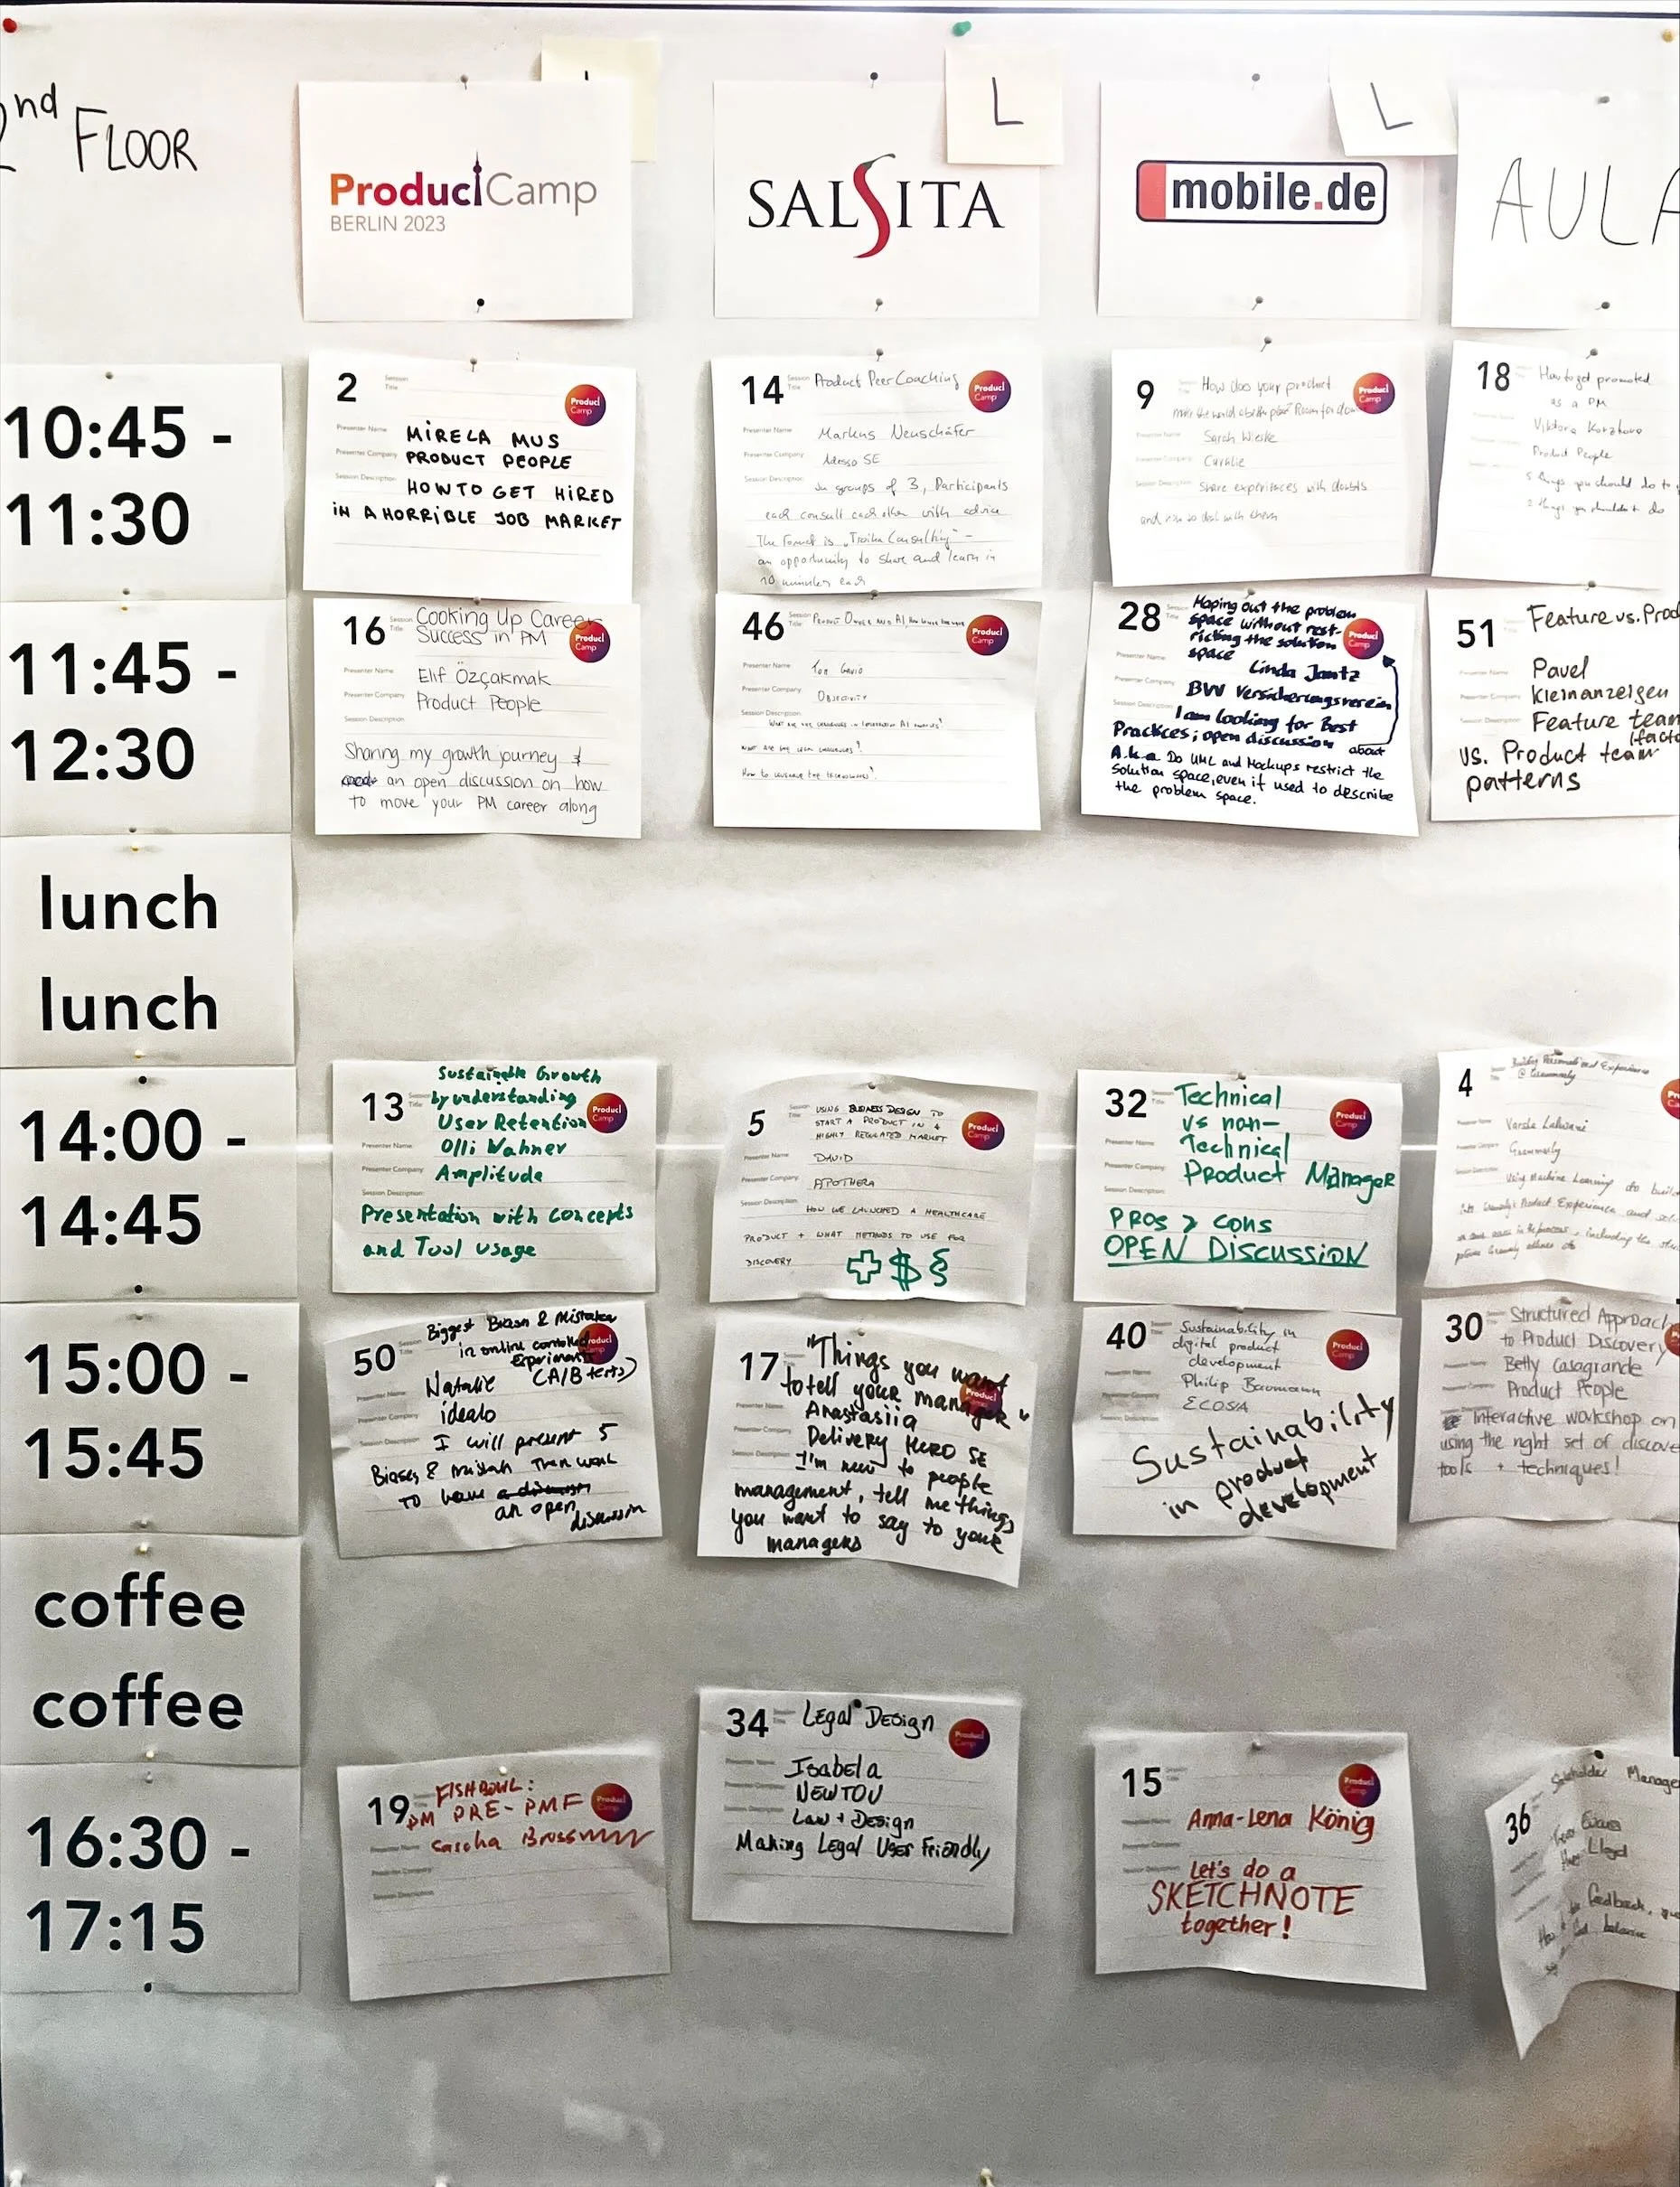 2nd FLOOR
ProductCamp
BERLIN 2023
L
SALSITA
L
mobile.de
AULA
10:45 -
11:30
2
Session Title
Product Camp
Presenter Name
MIRELA MUS
Presenter Company
PRODUCT PEOPLE
Session Description
HOW TO GET HIRED
IN A HORRIBLE JOB MARKET
14
Session Title
Product Peer Coaching
Product Camp
Presenter Name
Markus Neuschäfer
Presenter Company
Adesso SE
Session Description
In groups of 3, Participants
each consult each other with advice
The Format is "Troika Consulting" –
an opportunity to share and learn in
10 minutes each
9
How does your product
make the world a better place? Room for
Product Camp
Presenter Name
Sarah
Presenter Company
Session Description
Share experiences with doubts
and how to deal with them
18
How to get promoted
as a PM
Viktoria
Product People
5 things you should do to
2 things you shouldn't do
11:45 -
12:30
16
Session Title
Cooking Up Career
Success in PM
Product Camp
Presenter Name
Elif Özçakmak
Presenter Company
Product People
Session Description
Sharing my growth journey &
an open discussion on how
to move your PM career along
46
Session Title
Product Owner and AI,
Product Camp
Presenter Name
Presenter Company
Objectivity
Session Description
28
Maping out the problem
space without rest-
ricting the solution
space
Presenter Name
Linda Jantz
Presenter Company
BVV Versicherungsverein
Session Description
I am looking for Best
Practices; open discussion about
A.k.a Do UML and Mockups restrict the
solution space, even if used to describe
the problem space.
51
Feature vs. Prod
Pavel
Kleinanzeigen
Feature team
vs. Product team
patterns
lunch
lunch
14:00 -
14:45
13
Session Title
Sustainable Growth
by understanding
User Retention
Product Camp
Presenter Name
Olli Wahner
Presenter Company
Amplitude
Session Description
Presentation with concepts
and Tool usage
5
Session Title
USING BUSINESS DESIGN TO
START A PRODUCT IN A
HIGHLY REGULATED MARKET
Product Camp
Presenter Name
DAVID
Presenter Company
APOTHERA
Session Description
HOW WE LAUNCHED A HEALTHCARE
PRODUCT + WHAT METHODS TO USE FOR
DISCOVERY
$ §
32
Session Title
Technical
vs non-
Technical
Product Manager
Product Camp
Presenter Name
Presenter Company
Session Description
PROS & CONS
OPEN DISCUSSION
4
Building Personalized Experience
@ Grammarly
Grammarly
Using Machine Learning to
15:00 -
15:45
50
Biggest Biases & Mistakes
in online controlled
Experiments
(A/B tests)
Presenter Name
Natalie
Presenter Company
idealo
Session Description
I will present 5
Biases & mistakes Then want
to have a discussion
an open
discussion
17
"Things you want
to tell your manager"
Presenter Name
Anastasiia
Presenter Company
Delivery Hero SE
Session Description
I'm new to people
management, tell me things
you want to say to your
managers
40
Sustainability in
digital product
development
Product Camp
Presenter Name
Philip Baumann
Presenter Company
ECOSIA
Session Description
Sustainability
in product
development
30
Structured Approach
to Product Discovery
Betty Casagrande
Product People
Interactive workshop on
using the right set of discove
tools + techniques!
coffee
coffee
16:30 -
17:15
19
FISHBOWL:
PM PRE-PMF
Product Camp
Presenter Name
Sascha
Presenter Company
Session Description
34
Legal Design
Product Camp
Presenter Name
Isabela
Presenter Company
NEWTOV
Session Description
Law + Design
Making Legal User Friendly
15
Product Camp
Presenter Name
Anna-Lena König
Presenter Company
Session Description
Let's do a
SKETCHNOTE
together!
36
Stakeholder Manage
Lloyd
feedback,